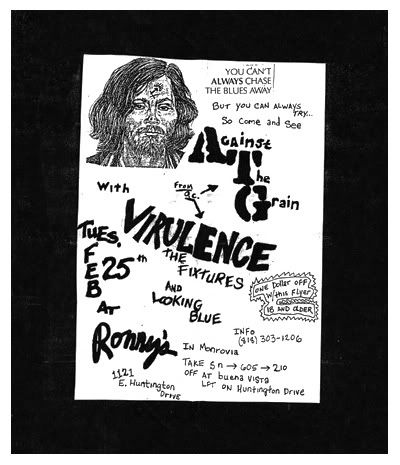 YOU CAN'T
ALWAYS CHASE
THE BLUES AWAY
BUT YOU CAN ALWAYS
TRY...
SO COME AND SEE
AGAINST
THE
GRAIN
With
FROM
O.C.
VIRULENCE
THE FIXTURES
AND
LOOKING
BLUE
TUES.
FEB 25th
AT
Ronny's
IN Monrovia
ONE DOLLAR OFF
W/THIS FLYER
18 AND OLDER
INFO
(818) 303-1206
TAKE 5 n → 605 → 210
OFF AT buena VISTA
LFT ON HUNTINGTON DRIVE
1121
E. HUNTINGTON
DRIVE